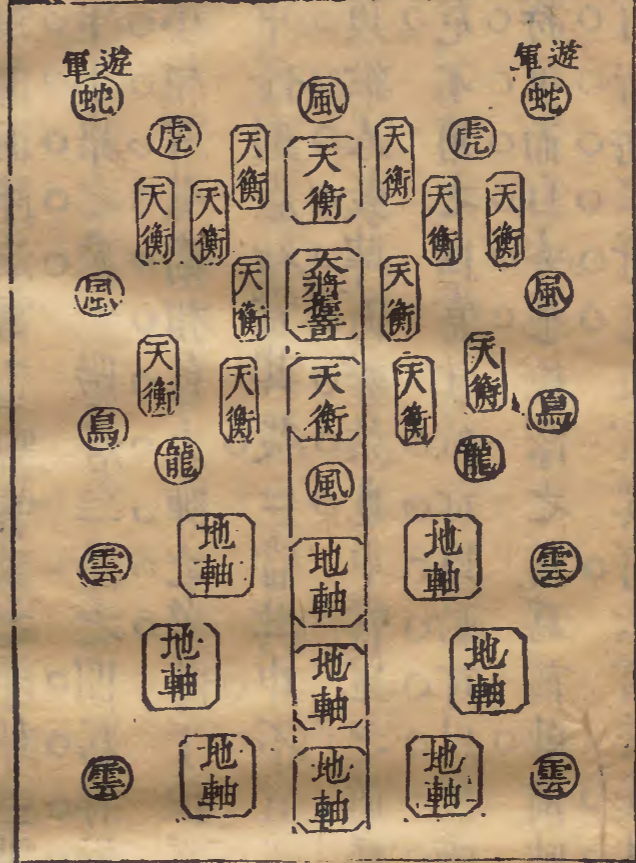 遊軍
遊軍
蛇
風
蛇
虎
虎
天衡
天衡
天衡
天衡
天衡
天衡
天衡
風
天衡
大將握竒
天衡
風
天衡
天衡
天衡
天衡
天衡
鳥
鳥
龍
龍
風
雲
地軸
地軸
地軸
雲
地軸
地軸
地軸
雲
地軸
地軸
地軸
雲